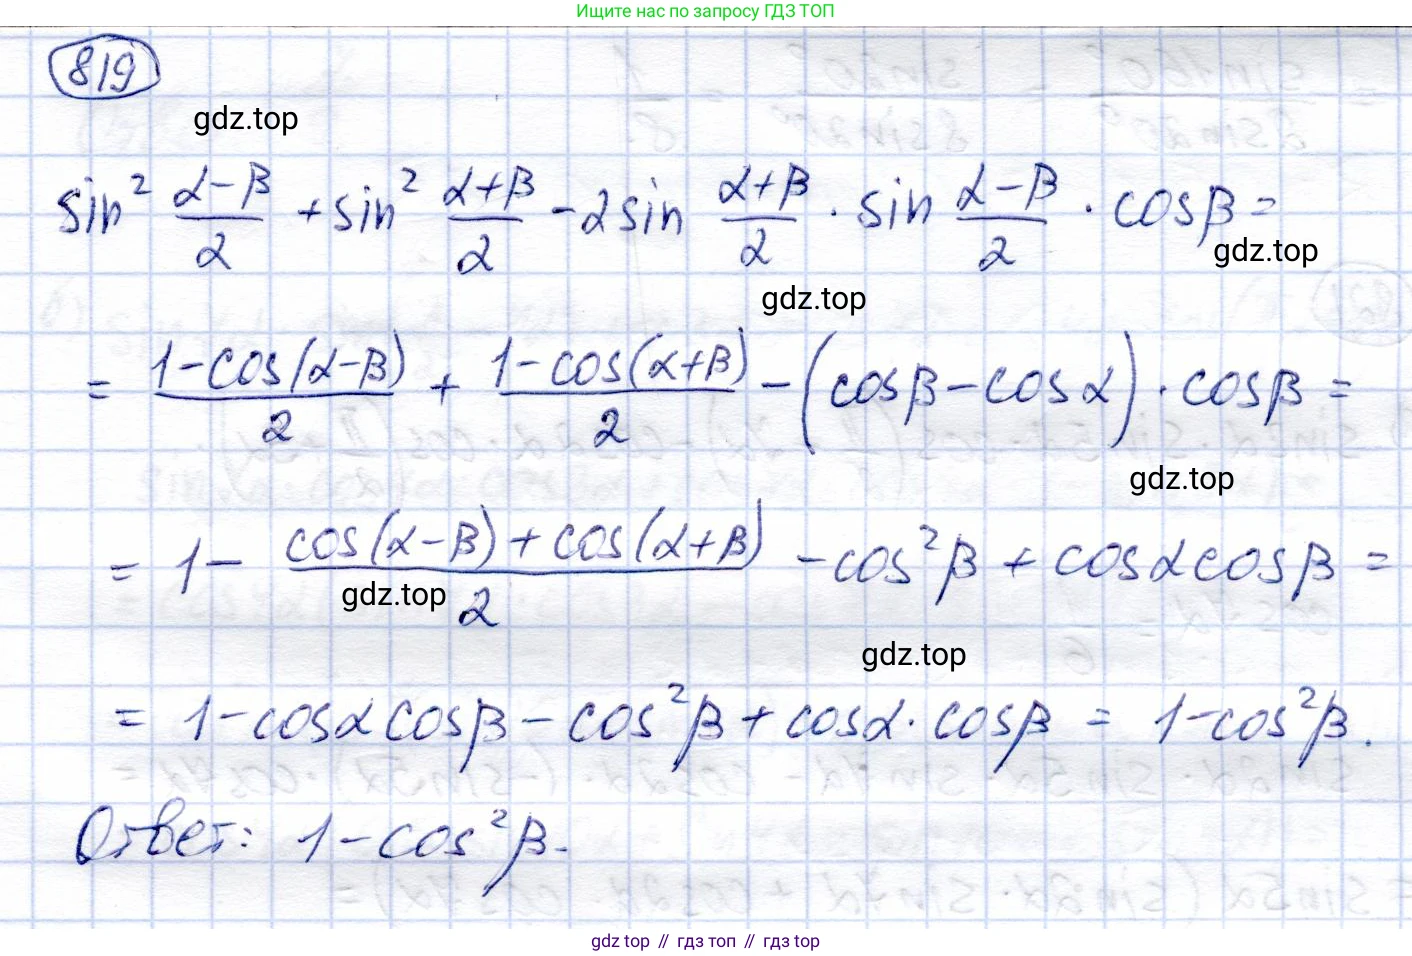 Ищите нас по запросу ГДЗ ТОП
819
gdz.top
sin² (α−β)/2 + sin² (α+β)/2 − 2sin (α+β)/2 · sin (α−β)/2 · cosβ =
gdz.top
gdz.top
= (1−cos(α−β))/2 + (1−cos(α+β))/2 − (cosβ − cosα) · cosβ =
gdz.top
= 1 − (cos(α−β) + cos(α+β))/2 − cos²β + cosαcosβ =
gdz.top
gdz.top
= 1 − cosαcosβ − cos²β + cosα · cosβ = 1 − cos²β.
Ответ: 1 − cos²β.
gdz top // гдз топ // гдз top